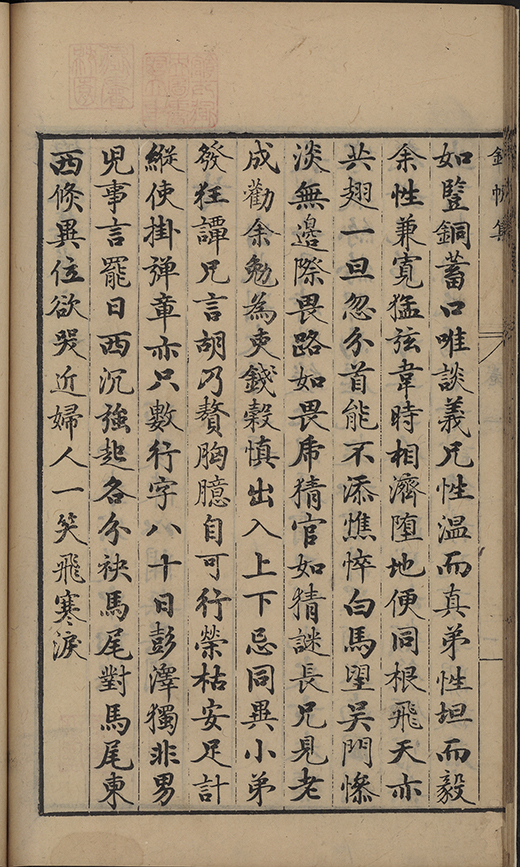 錦帆集
如豎銅蓄口唯談義兄性温而真弟性坦而毅
余性兼寬猛弦韋時相濟墮地便同根飛天亦
共翅一旦忽分首能不添憔悴白馬望吳門慘
淡無邊際畏路如畏乕猜官如猜謎長兄見老
成勸余勉為吏錢穀慎出入上下忌同異小弟
發狂譚兄言胡乃贅胸臆自可行榮枯安足計
縱使掛弹章亦只數行字八十日彭澤獨非男
兒事言罷日西沉強起各分袂馬尾對馬尾東
西倐異位欲哭近婦人一笑飛寒淚